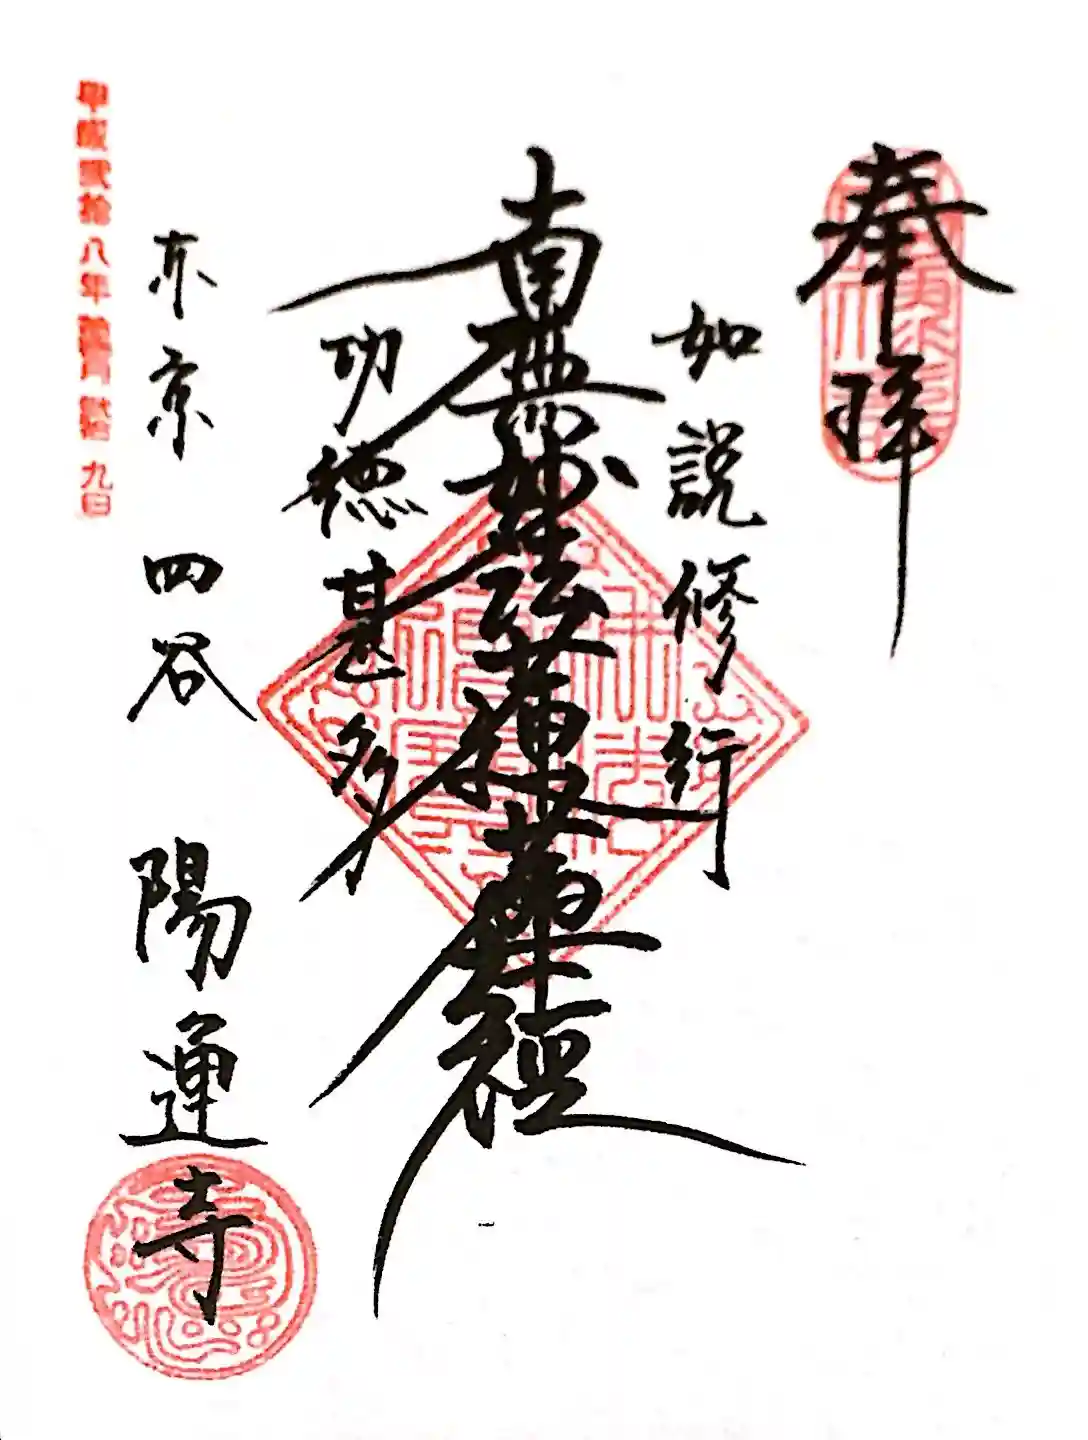 奉拝
如説修行
南無妙法蓮華経
功徳甚多
東京 四谷 陽運寺
平成弐拾八年 九日